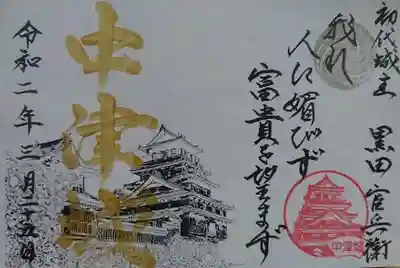 初代城主 黒田官兵衛
我れ
人に媚びず
富貴を望まず
中津城
令和二年三月二十五日
中津城